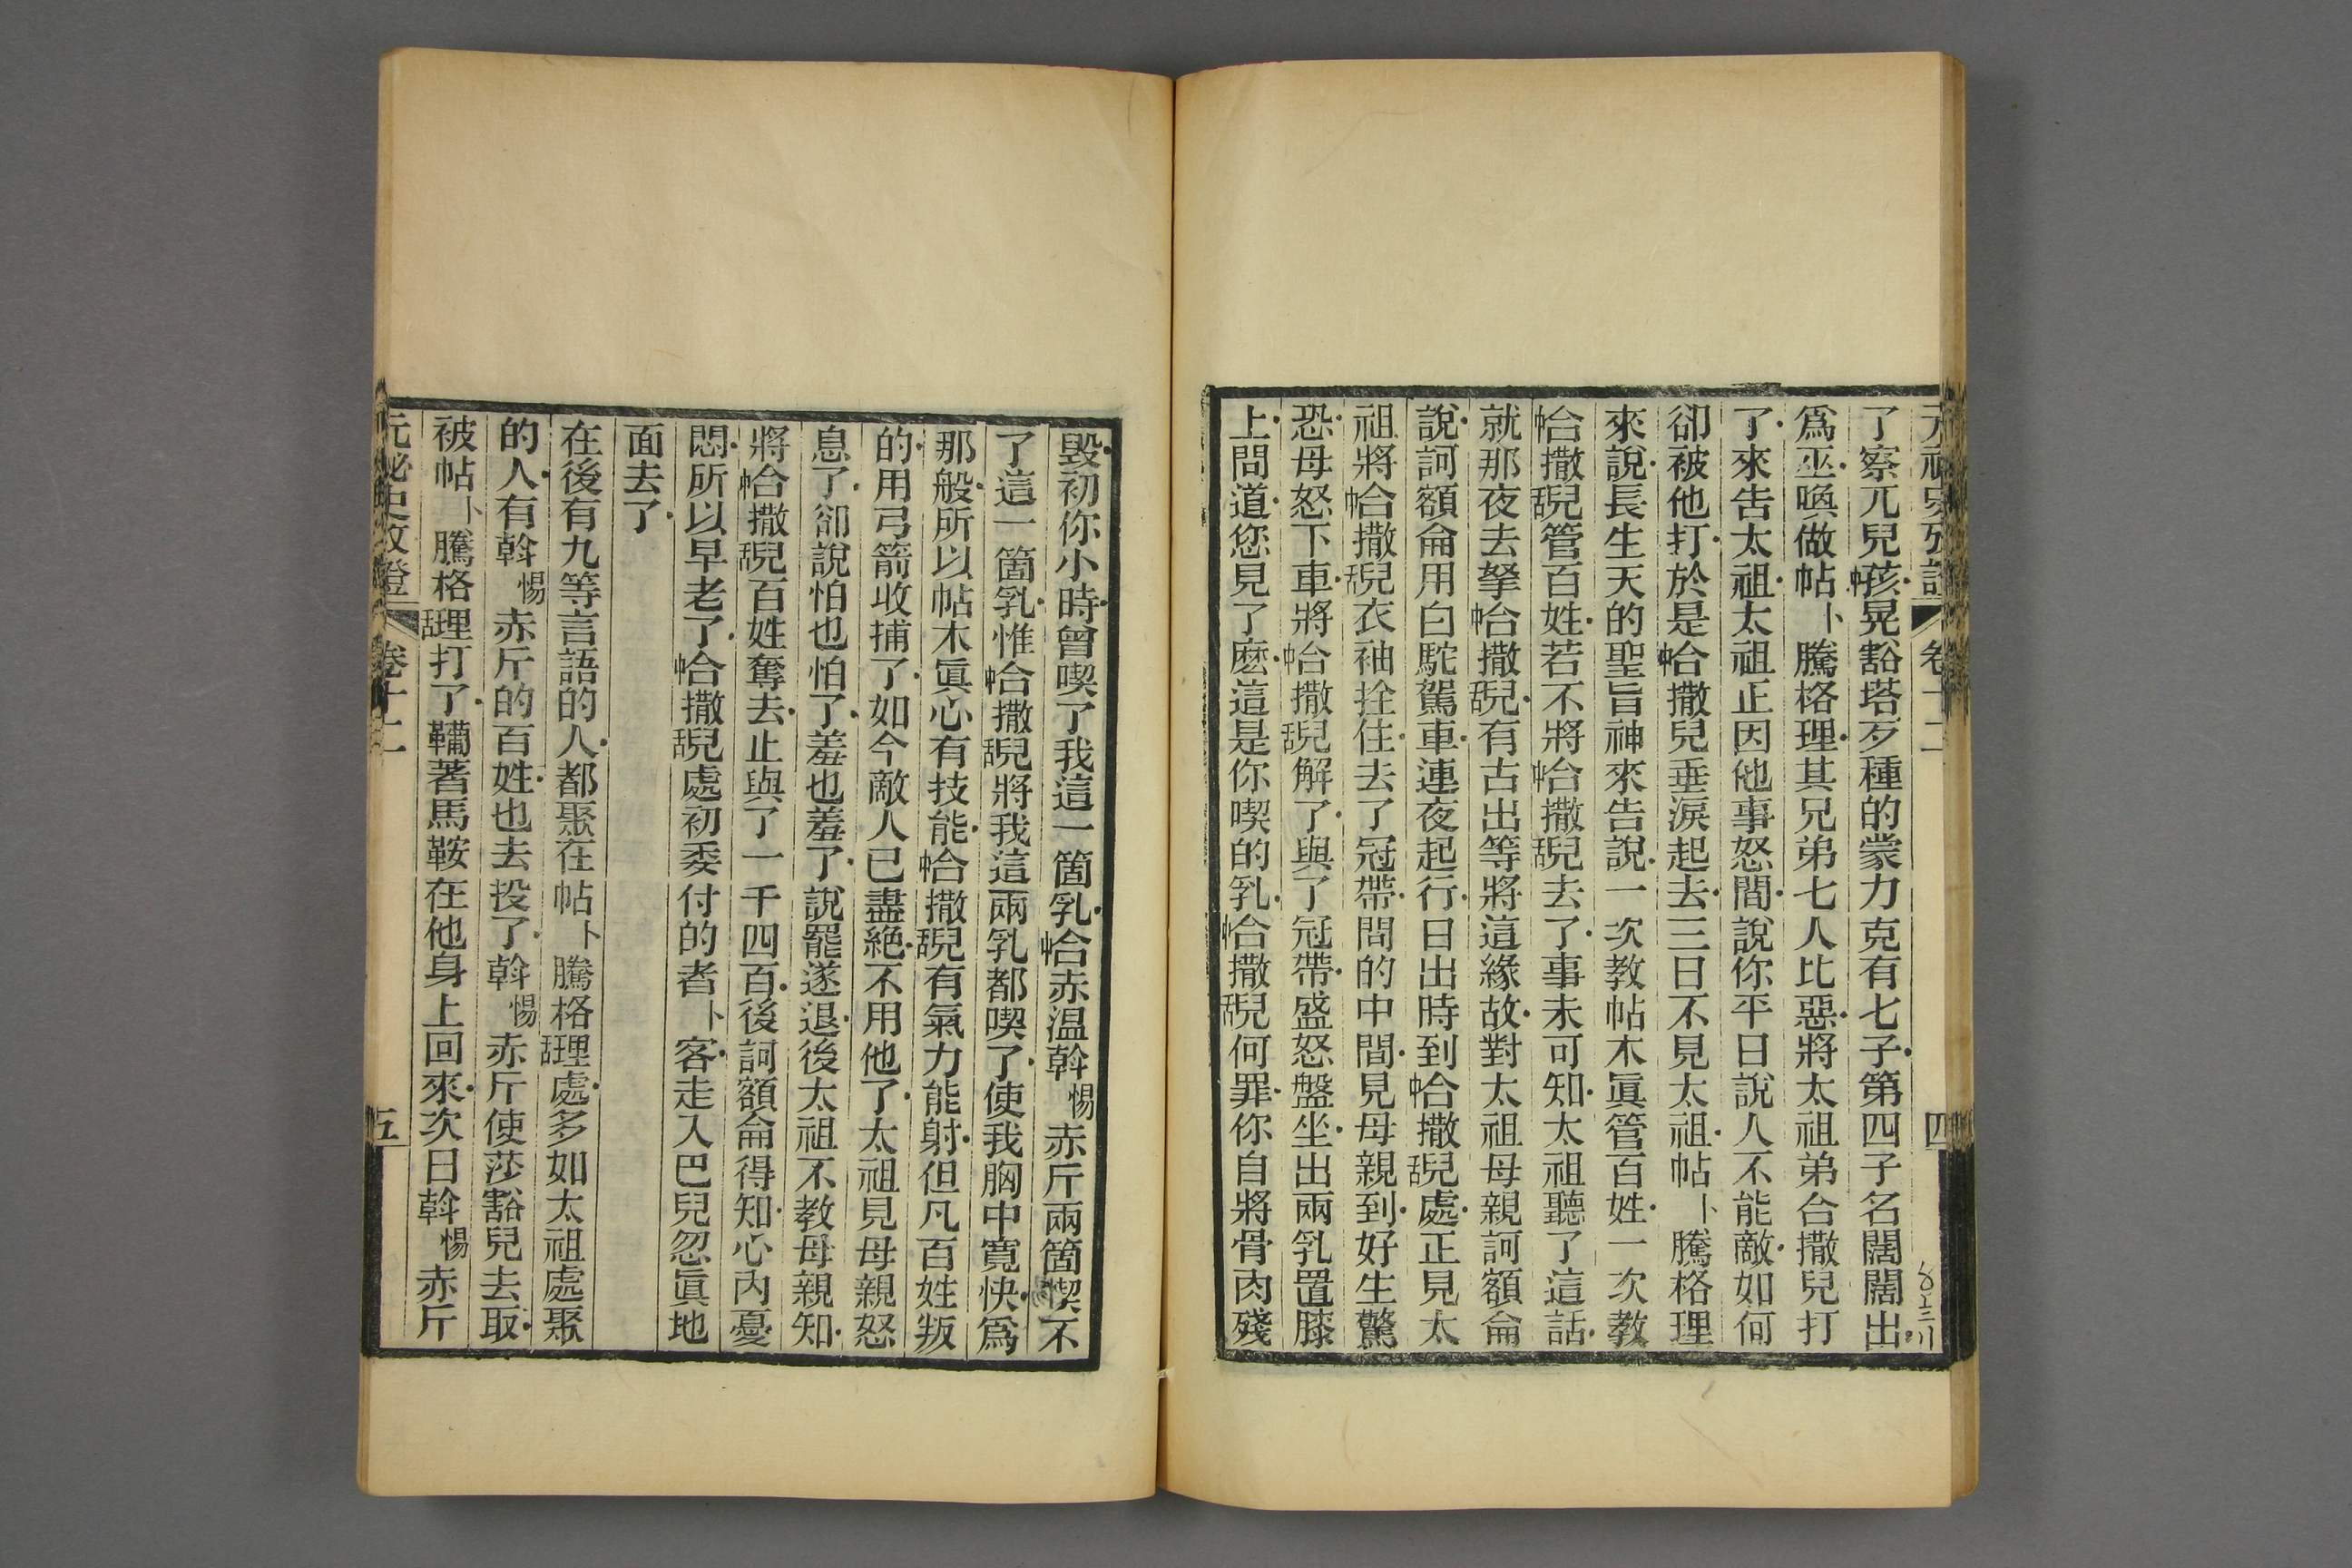 元祕史攷證 卷十二 四
了察兀兒中孩晃豁塔歹種的蒙力克有七子第四子名闊闊出
爲巫喚做帖卜騰格理其兄弟七人比惡將太祖弟合撒兒打
了來告太祖太祖正因他事怒間說你平日說人不能敵如何
卻被他打於是中合撒兒垂淚起去三日不見太祖帖卜騰格理
來說長生天的聖旨神來告說一次教帖木眞管百姓一次教
中合撒舌兒管百姓若不將中合撒舌兒去了事未可知太祖聽了這話
就那夜去拏中合撒舌兒有古出等將這緣故對太祖母親訶額侖
說訶額侖用白駝駕車連夜起行日出時到中合撒舌兒處正見太
祖將中合撒舌兒衣袖拴住去了冠帶問的中間見母親到好生驚
恐母怒下車將中合撒舌兒解了與了冠帶盛怒盤坐出兩乳置膝
上問道您見了麽這是你喫的乳中合撒舌兒何罪你自將骨肉殘
毀初你小時曾喫了我這一箇乳中合赤温斡惕赤斤兩箇喫不
了這一箇乳惟中合撒舌兒將我這兩乳都喫了使我胸中寬快爲
那般所以帖木眞心有技能中合撒舌兒有氣力能射但凡百姓叛
的用弓箭收捕了如今敵人已盡絶不用他了太祖見母親怒
息了卻說怕也怕了羞也羞了說罷遂退後太祖不教母親知
將中合撒舌兒百姓奪去止與了一千四百後訶額侖得知心內憂
悶所以早老了中合撒舌兒處初委付的者卜客走入巴兒忽眞地
面去了
在後有九等言語的人都聚在帖卜騰格舌理處多如太祖處聚
的人有斡惕赤斤的百姓也去投了斡惕赤斤使莎豁兒去取
被帖卜騰格舌理打了鞴著馬鞍在他身上回來次日斡惕赤斤
元祕史攷證 卷十二 五